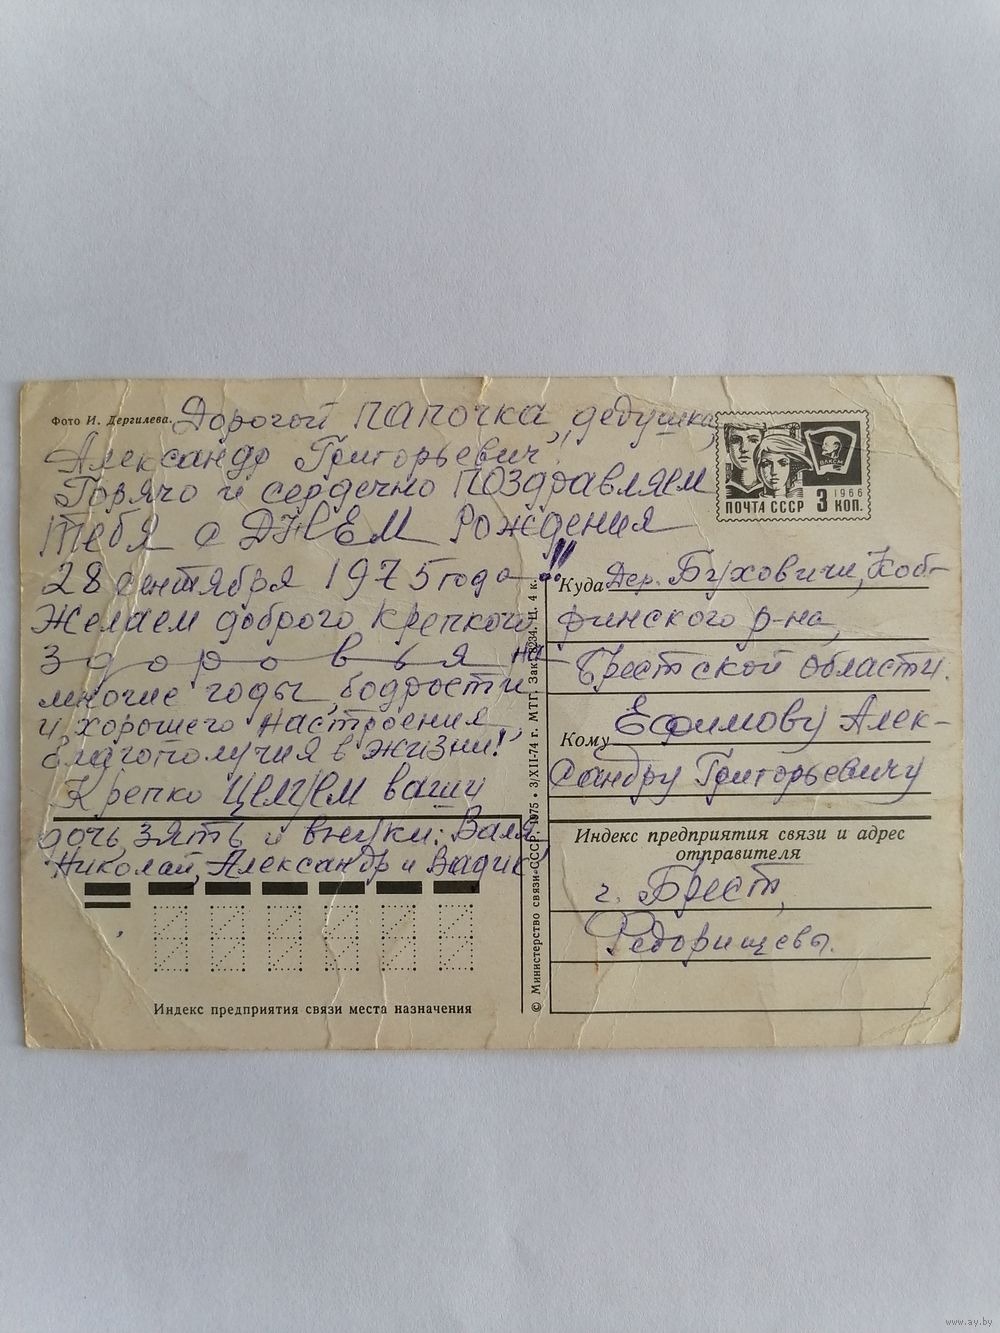 Фото И. Дергилева.
Дорогой папочка, дедушка,
Александр Григорьевич,
Горячо и сердечно ПОЗДРАВЛЯЕМ
тебя с ДНЁМ Рождения
28 сентября 1975 года!!
Желаем доброго крепкого
здоровья на
многие годы, бодрости
и хорошего настроения,
благополучия в жизни!
Крепко целуем ваши
дочь, зять и внуки: Валя
Николай, Александр и Вадик
Индекс предприятия связи места назначения
© Министерство связи СССР. 1975 • 3/XII-74 г. МТГ. Зак. 8234. Ц. 4 к.
ВЛКСМ
1966
ПОЧТА СССР 3 КОП.
Куда Дер. Буховичи, Коб-
ринского р-на,
Брестской области.
Кому Ефимову Алек-
сандру Григорьевичу
Индекс предприятия связи и адрес
отправителя
г. Брест,
Федорищевы.
www.ay.by